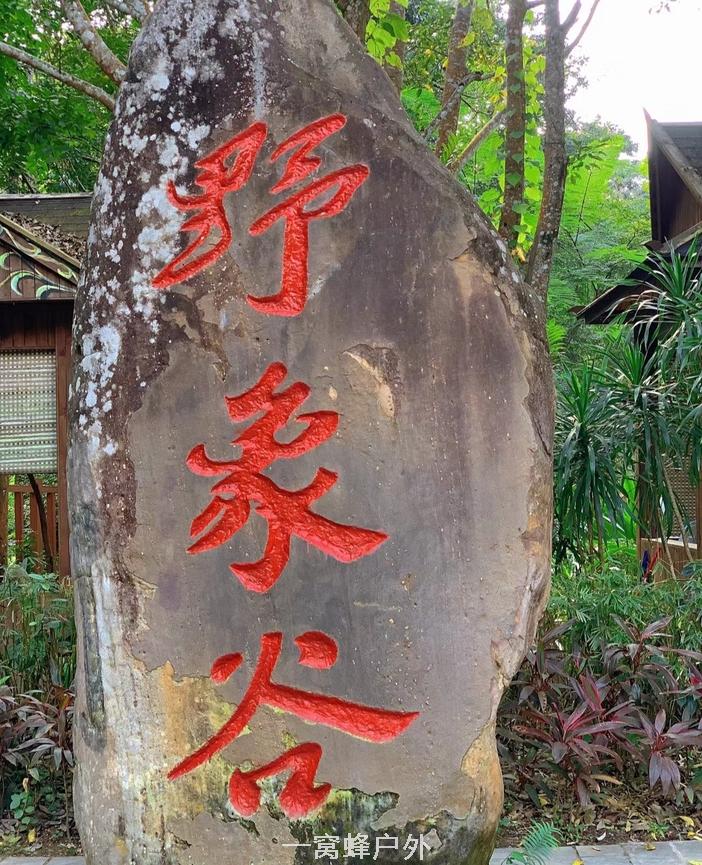 野象谷
一窝蜂户外